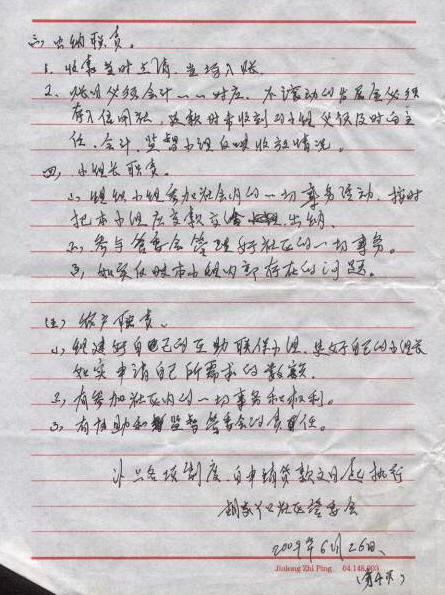 三、出纳职责。
1、收款当时点清,当场入账。
2、账目必须会计一一对应,不流动的发展金必须
存入信用社,还款时未收到的小组必须及时向主
任、会计、监督小组反映收放情况。
四、小组长职责。
1、组织小组参加社会内的一切事务活动,按时
把本小组应交款交给出纳。
2、参与管委会管理好社区的一切事务。
3、如实反映本小组内部存在的问题。
农户职责。
1、组建好自己的互助联保小组,选好自己的小组长
如实申请自己所需求的数额。
2、有参加社区内的一切事务和权利。
3、有协助和监督管委会的责任。
以上各项制度,自申请贷款之日起执行
社区管委会
2009年6月26日
Jinlong Zhi Ping 04.148.003
(第4页)